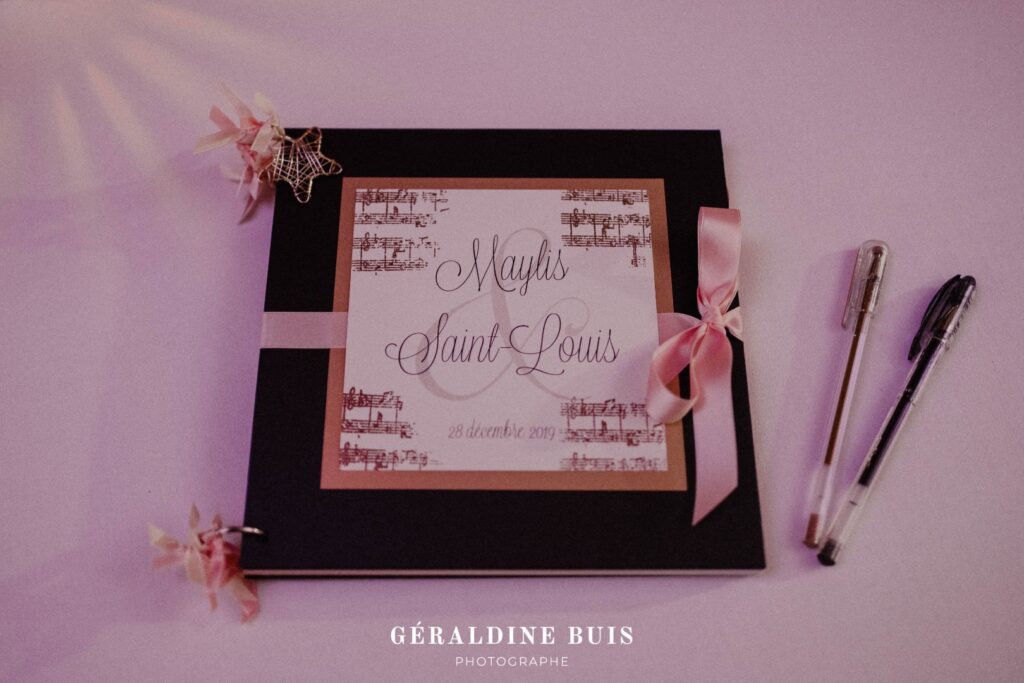 Maylis
&
Saint-Louis
28 décembre 2019
GÉRALDINE BUIS
PHOTOGRAPHE